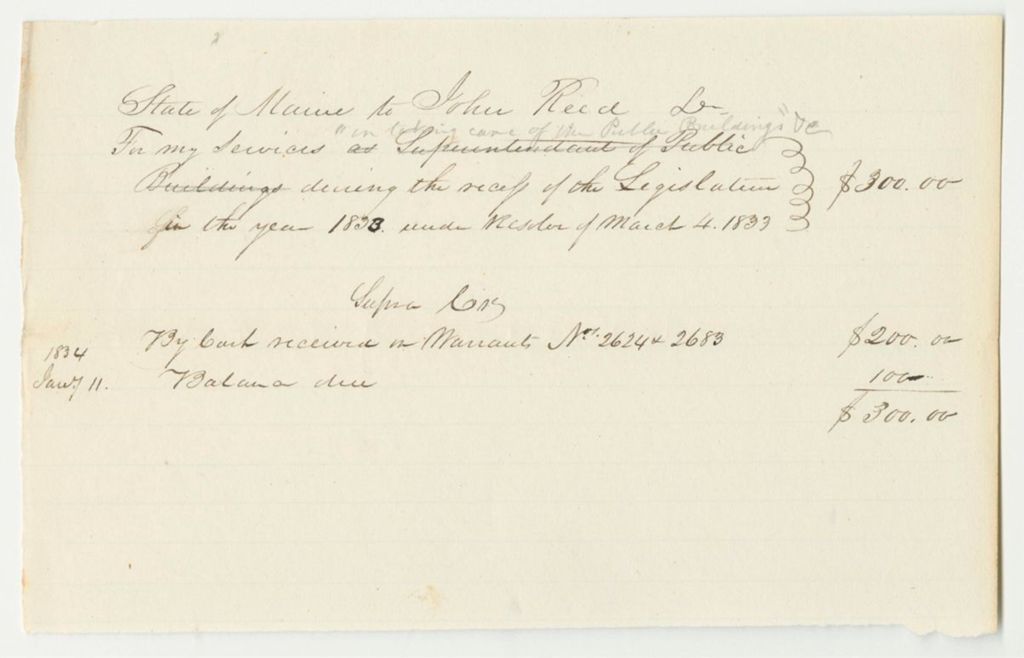 State of Maine to John Reed Dr
"in taking care of the Public Buildings" &c
For my Services as Superintendant of Public
Buildings during the recess of the Legislature
in the year 1833. under Resolve of March 4. 1833
$300.00
Supra Cr
By Cash received on Warrants Nos. 2624 & 2683
$200.00
1834
Jany 11.
Balance due
100
$300.00